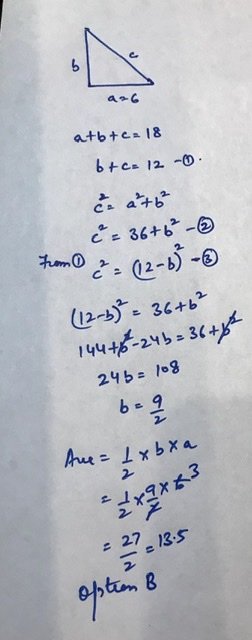 b
c
a=6
a+b+c=18
b+c=12 -①.
c²=a²+b²
c²=36+b² -②
From① c²=(12-b)² -③
(12-b)²=36+b²
144+b²-24b=36+b²
24b=108
b=9/2
Ans=1/2×b×a
=1/2×9/2×6 3
=27/2=13.5
Option B